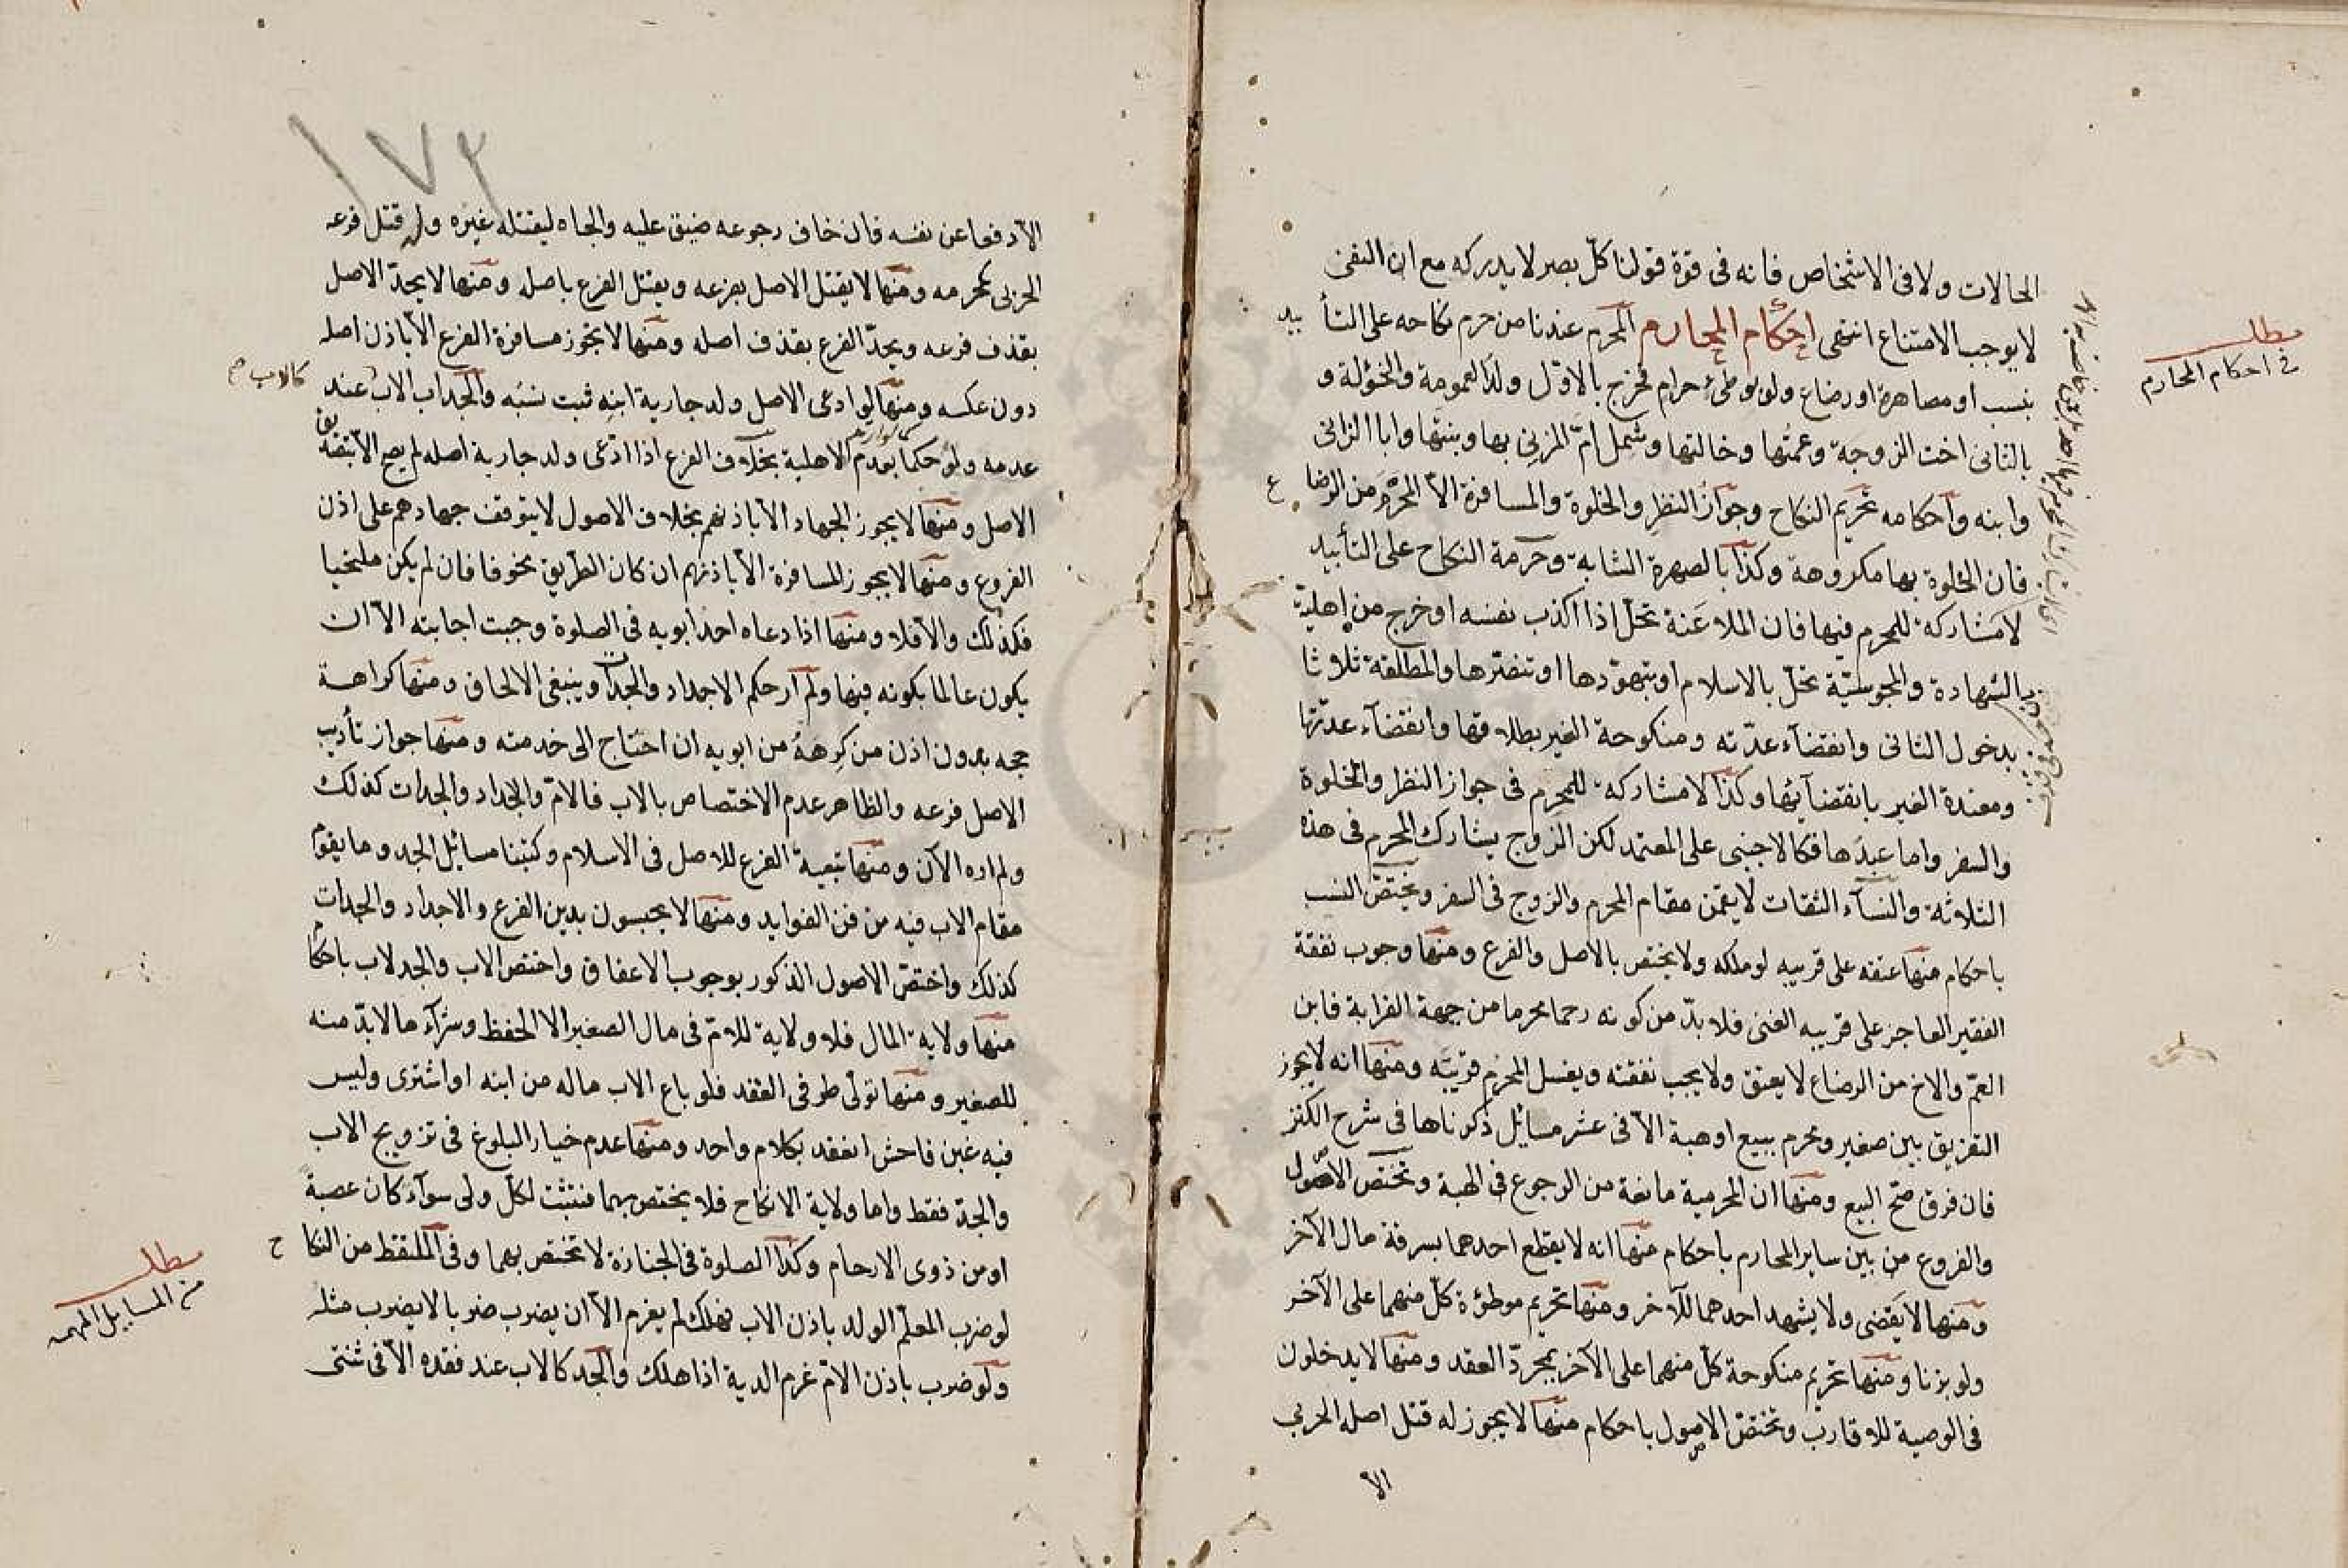 الحالات ولا فى الاشخاص فانه فى قوة قولنا كلّ بصر لا يدركه مع ان النفى
لا يوجب الامتناع انتهى احكام المحارم المحرم عندنا من حرم نكاحه على التأبيد
بنسب او مصاهرة او رضاع ولو بوطئ حرام فخرج بالاوّل ولد العمومة والخؤلة و
بالثانى اخت الزوجة وعمتها وخالتها وشمل امّ المزنى بها وبنتها وابا الزانى
وابنه واحكامه تحريم النكاح وجواز النظر والخلوة والمسافرة الا المحرم من الرضاع
فان الخلوة بها مكروهة وكذا بالصهرة الشابة وحرمة النكاح على التأبيد
لا مشاركة للمحرم فيها فان الملاعنة تحلّ اذا اكذب نفسه او خرج من اهلية
الشهادة والمجوسيّة تحلّ بالاسلام او بتهوّدها او تنصّرها والمطلقة ثلاثا
بدخول الثانى وانقضآء عدّته ومنكوحة الغير بطلاقها وانقضآء عدّتها
ومعتدة الغير بانقضآئها وكذا لا مشاركة للمحرم فى جواز النظر والخلوة
والسفر واما عبدها فكالاجنبى على المعتمد لكن الزوج يشارك المحرم فى هذه
الثلاثة والنسآء الثقات لا يقمن مقام المحرم والزوج فى السفر ويختصّ النسب
باحكام منها عتقه على قريبه لو ملكه ولا يختص بالاصل والفرع ومنها وجوب نفقة
الفقير العاجز على قريبه الغنى فلا بدّ من كونه رحما محرما من جهة القرابة فابن
العمّ والاخ من الرضاع لا يعتق ولا يجب نفقته ويغسل المحرم قريبَه ومنها انه لا يجوز
التفريق بين صغير ومحرم ببيع او هبة الا فى عشر مسائل ذكرناها فى شرح الكنز
فان فرق صحّ البيع ومنها ان المحرمية مانعة من الرجوع فى الهبة وتختص الاصول
والفروع من بين ساير المحارم باحكام منها انه لا يقطع احدهما بسرقة مال الآخر
ومنها لا يَقضى ولا يشهد احدهما للآخر ومنها تحريم موطؤة كلّ منهما على الآخر
ولو بزنا ومنها تحريم منكوحة كلّ منهما على الآخر بمجردّ العقد ومنها لا يدخلون
فى الوصية للاقارب وتختصّ الاصول باحكام منها لا يجوز له قتل اصله الحربى
الا
مطلب
فى احكام المحارم
١٧٢
الا دفعا عن نفسه فان خاف رجوعه ضيق عليه والجاه ليقتله غيره وله قتل فرعه
الحربى كمحرمه ومنها لا يقتل الاصل بفرعه ويقتل الفرع باصله ومنها لا يحدّ الاصل
بقذف فرعه ويحدّ الفرع بقذف اصله ومنها لا تجوز مسافرة الفرع الا باذن اصله
دون عكسه ومنها لو ادعى الاصل ولد جارية ابنه ثبت نسبه والجد اب الاب عند
كالاب صح
عدمه ولو حكما بعدم الاهلية بخلاف الفرع اذا ادّعى ولد جارية اصله لم يصح الا بتصديق
الاصل ومنها لا يجوز الجهاد الا باذنهم بخلاف الاصول لا يتوقف جهادهم على اذن
الفروع ومنها لا يجوز المسافرة الا باذنهم ان كان الطريق مخوفا فان لم يكن ملتحيا
فكذلك والا فلا ومنها اذا دعاه احد ابويه فى الصلوة وجبت اجابته الا ان
يكون عالما بكونه فيها ولم ار حكم الاجداد والجدات وينبغى الالحاق ومنها كراهة
حجه بدون اذن من كرهه من ابويه ان احتاج الى خدمته ومنها جواز تأديب
الاصل فرعه والظاهر عدم الاختصاص بالاب فالامّ والاجداد والجدات كذلك
ولم اره الآن ومنها تبعية الفرع للاصل فى الاسلام وكتبنا مسائل الجد وما يقوم
مقام الاب فيه من فن الفوايد ومنها لا يحبسون بدين الفرع والاجداد والجدات
كذلك واختصّ الاصول الذكور بوجوب الاعفاف واختص الاب والجد لاب باحكام
منها ولاية المال فلا ولاية للامّ فى مال الصغير الا الحفظ وشرآء ما لا بدّ منه
للصغير ومنها تولّى طرفى العقد فلو باع الاب ماله من ابنه او اشترى وليس
فيه غبن فاحش انعقد بكلام واحد ومنها عدم خيار البلوغ فى تزويج الاب
والجدّ فقط واما ولاية الانكاح فلا يختص بهما فتثبت لكلّ ولى سوآء كان عصبة
او من ذوى الارحام وكذا الصلوة فى الجنازة لا تختص بهما وفى الملتقط من النكاح
لو ضرب المعلّم الولد باذن الاب فهلك لم يغرم الا ان يضرب ضربا لا يضرب مثله
ولو ضرب باذن الامّ غرم الدية اذا هلك والجد كالاب عند فقده الا فى ثنتى
مطلب
من المسايل المهمه